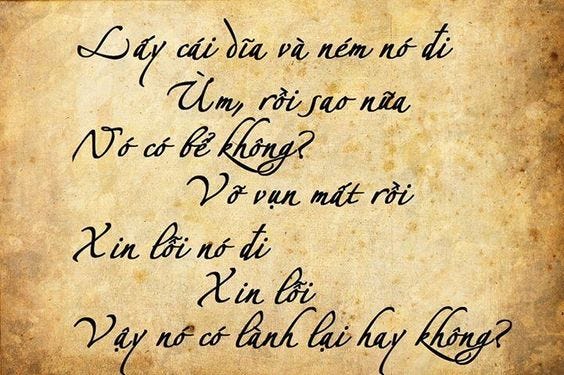 Lấy cái dĩa và ném nó đi
Ùm, rồi sao nữa
Nó có bể không?
Vỡ vụn mất rồi
Xin lỗi nó đi
Xin lỗi
Vậy nó có lành lại hay không?